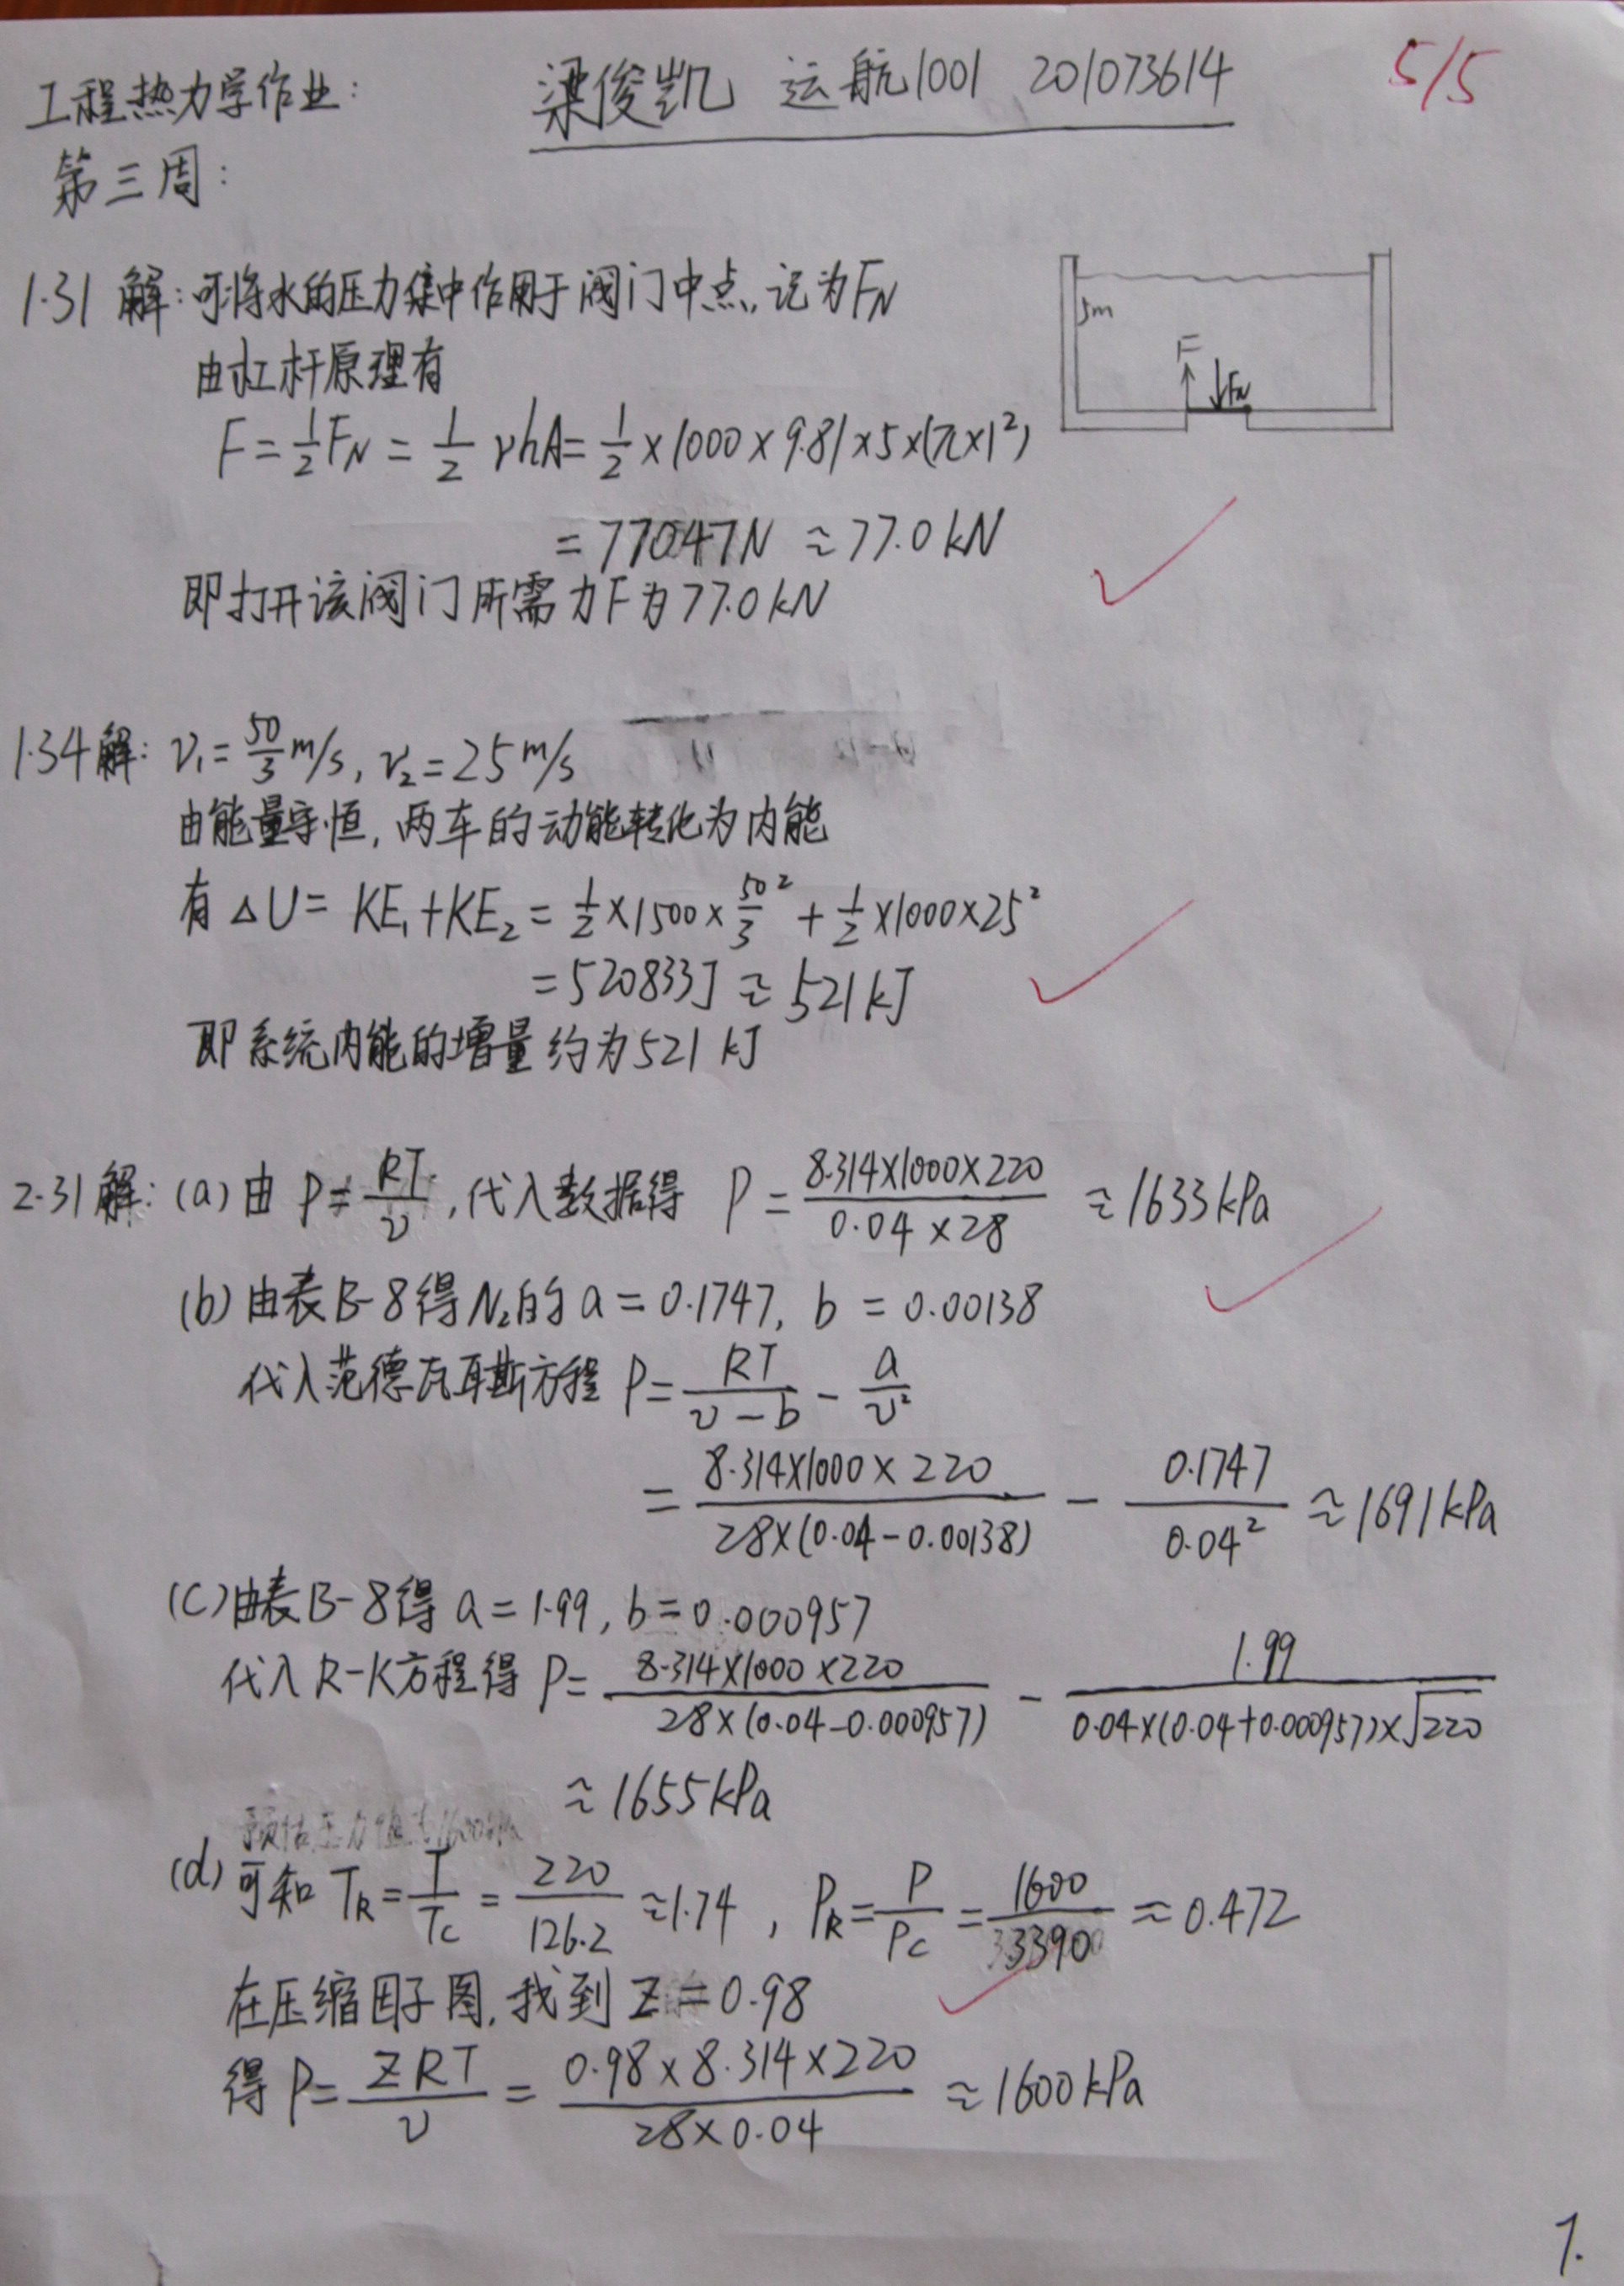 工程热力学作业:
梁俊凯 运航1001 201073614
5/5
第三周:
1.31 解: 可将水的压力集中作用于阀门中点, 记为F_N
由杠杆原理有
5m
F
F_N
F = 1/2 F_N = 1/2 γhA = 1/2 × 1000 × 9.81 × 5 × (π×1²)
= 77047N ≈ 77.0 kN
即打开该阀门所需力F为77.0 kN
1.34 解: v₁ = 50/3 m/s, v₂ = 25 m/s
由能量守恒, 两车的动能转化为内能
有 ΔU = KE₁+KE₂ = 1/2 × 1500 × 50/3² + 1/2 × 1000 × 25²
= 520833J ≈ 521 kJ
即系统内能的增量约为521 kJ
2.31 解: (a) 由 P = RT/v, 代入数据得 P = 8.314×1000×220/0.04×28 ≈ 1633 kPa
(b) 由表B-8得N₂的 a = 0.1747, b = 0.00138
代入范德瓦耳斯方程 P = RT/v-b - a/v²
= 8.314×1000×220/28×(0.04-0.00138) - 0.1747/0.04² ≈ 1691 kPa
(C) 由表B-8得 a = 1.99, b = 0.000957
代入R-K方程得 P = 8.314×1000×220/28×(0.04-0.000957) - 1.99/0.04×(0.04+0.000957)×√220
≈ 1655 kPa
(d) 可知 T_R = T/T_C = 220/126.2 ≈ 1.74, P_R = P/P_C = 1600/3390 ≈ 0.472
在压缩因子图, 找到 Z = 0.98
得 P = ZRT/v = 0.98×8.314×220/28×0.04 ≈ 1600 kPa
1.